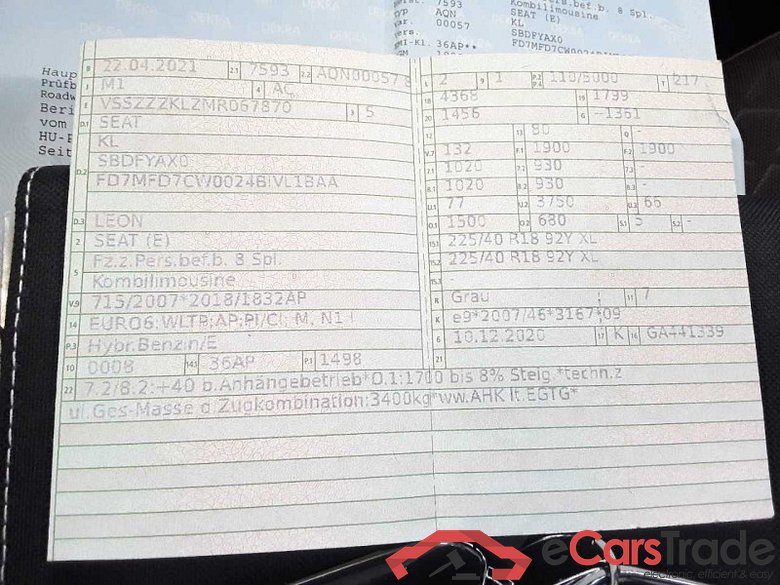 7593
Kombilimousine
AQN
SEAT (E)
00057
KL
SBDFYAX0
36AP**
Haup
Prüfb
Roadw
Beri
vom
HU-E
Seit
B 22.04.2021 2.1 7593 2.2 AQN00057 8
J M1 4 AC
E VSSZZZKLZMR067870 3 5
D.1 SEAT
KL
D.2 SBDFYAX0
FD7MFD7CW0024BIVL1BAA
D.3 LEON
2 SEAT (E)
5 Fz.z.Pers.bef.b. 8 Spl.
Kombilimousine
V.9 715/2007*2018/1832AP
14 EURO6;WLTP;AP;PI/CI; M, N1 I
P.3 Hybr.Benzin/E
10 0008 14.1 36AP P.1 1498
L 2 9 1 P.2 P.4 110/5000 T 217
18 4368 19 1799
20 1456 G --1361
12 13 80 Q -
V.7 132 F.1 1900 F.2 1900
7.1 1020 7.2 930 7.3 -
8.1 1020 8.2 930 8.3 -
U.1 77 U.2 3750 U.3 65
O.1 1500 O.2 680 S.1 5 S.2 -
15.1 225/40 R18 92Y XL
15.2 225/40 R18 92Y XL
15.3
R Grau 11 7
K e9*2007/46*3167*09
6 10.12.2020 17 K 16 GA441339
21
22 7.2/8.2:+40 b.Anhängebetrieb*O.1:1700 bis 8% Steig.*techn.z
ul.Ges-Masse d.Zugkombination:3400kg*ww.AHK lt.EGTG*
eCarsTrade
electronic, efficient & easy